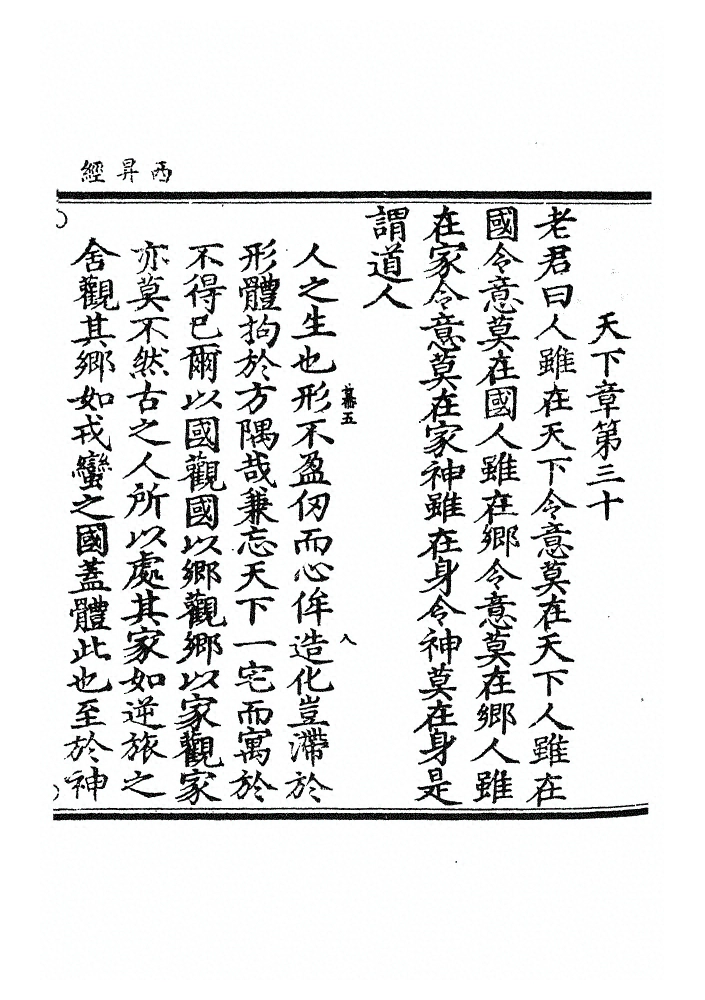 西昇經
天下章第三十
老君曰人雖在天下令意莫在天下人雖在
國令意莫在國人雖在鄉令意莫在鄉人雖
在家令意莫在家神雖在身令神莫在身是
謂道人
人之生也形不盈仞而心侔造化豈滯於
形體拘於方隅哉兼忘天下一宅而寓於
不得已爾以國觀國以鄉觀鄉以家觀家
亦莫不然古之人所以處其家如逆旅之
舍觀其鄉如戎蠻之國蓋體此也至於神
五
八